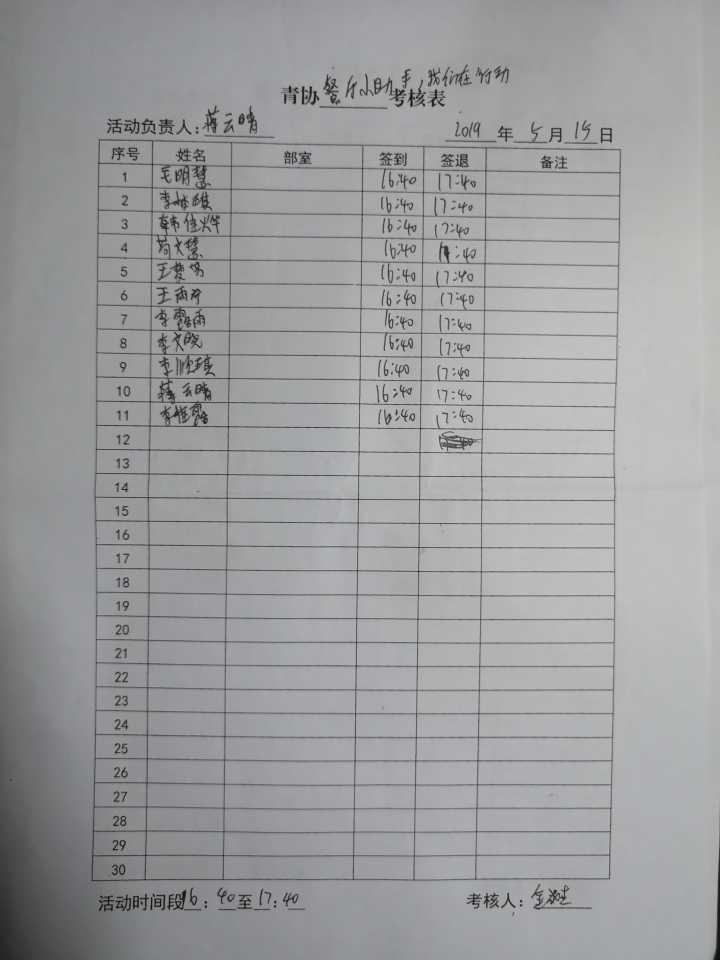 青协餐厅小助手,我们在行动考核表
活动负责人:蒋云晴 2019年5月15日
序号 姓名 部室 签到 签退 备注
1 毛明慧 16:40 17:40
2 李 16:40 17:40
3 韩佳烨 16:40 17:40
4 苟文慧 16:40 17:40
5 王梦 16:40 17:40
6 王雨 16:40 17:40
7 李露雨 16:40 17:40
8 李文晓 16:40 17:40
9 李顺琪 16:40 17:40
10 蒋云晴 16:40 17:40
11 李佳露 16:40 17:40
12
13
14
15
16
17
18
19
20
21
22
23
24
25
26
27
28
29
30
活动时间段16:40至17:40 考核人:金